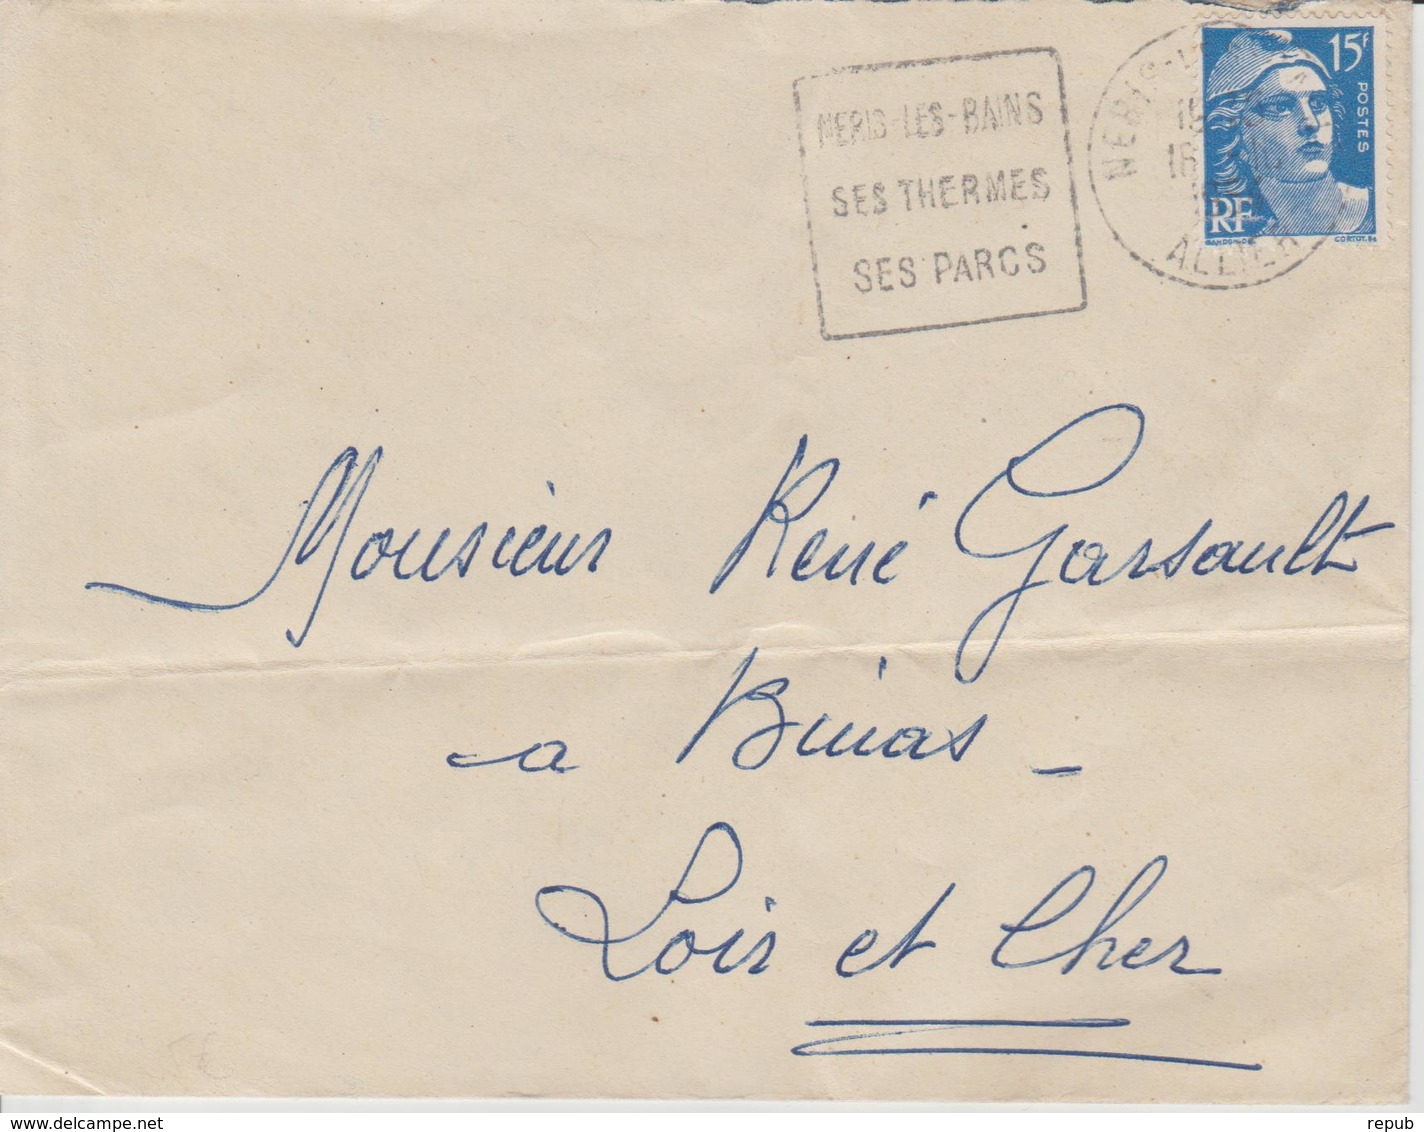 NERIS-LES-BAINS
SES THERMES
SES PARCS
ALLIER
15F
POSTES
RF
GANDON-DEL.
CORTOT.
Monsieur René Garsault
a Binas -
Loir et Cher
www.delcampe.net
repub